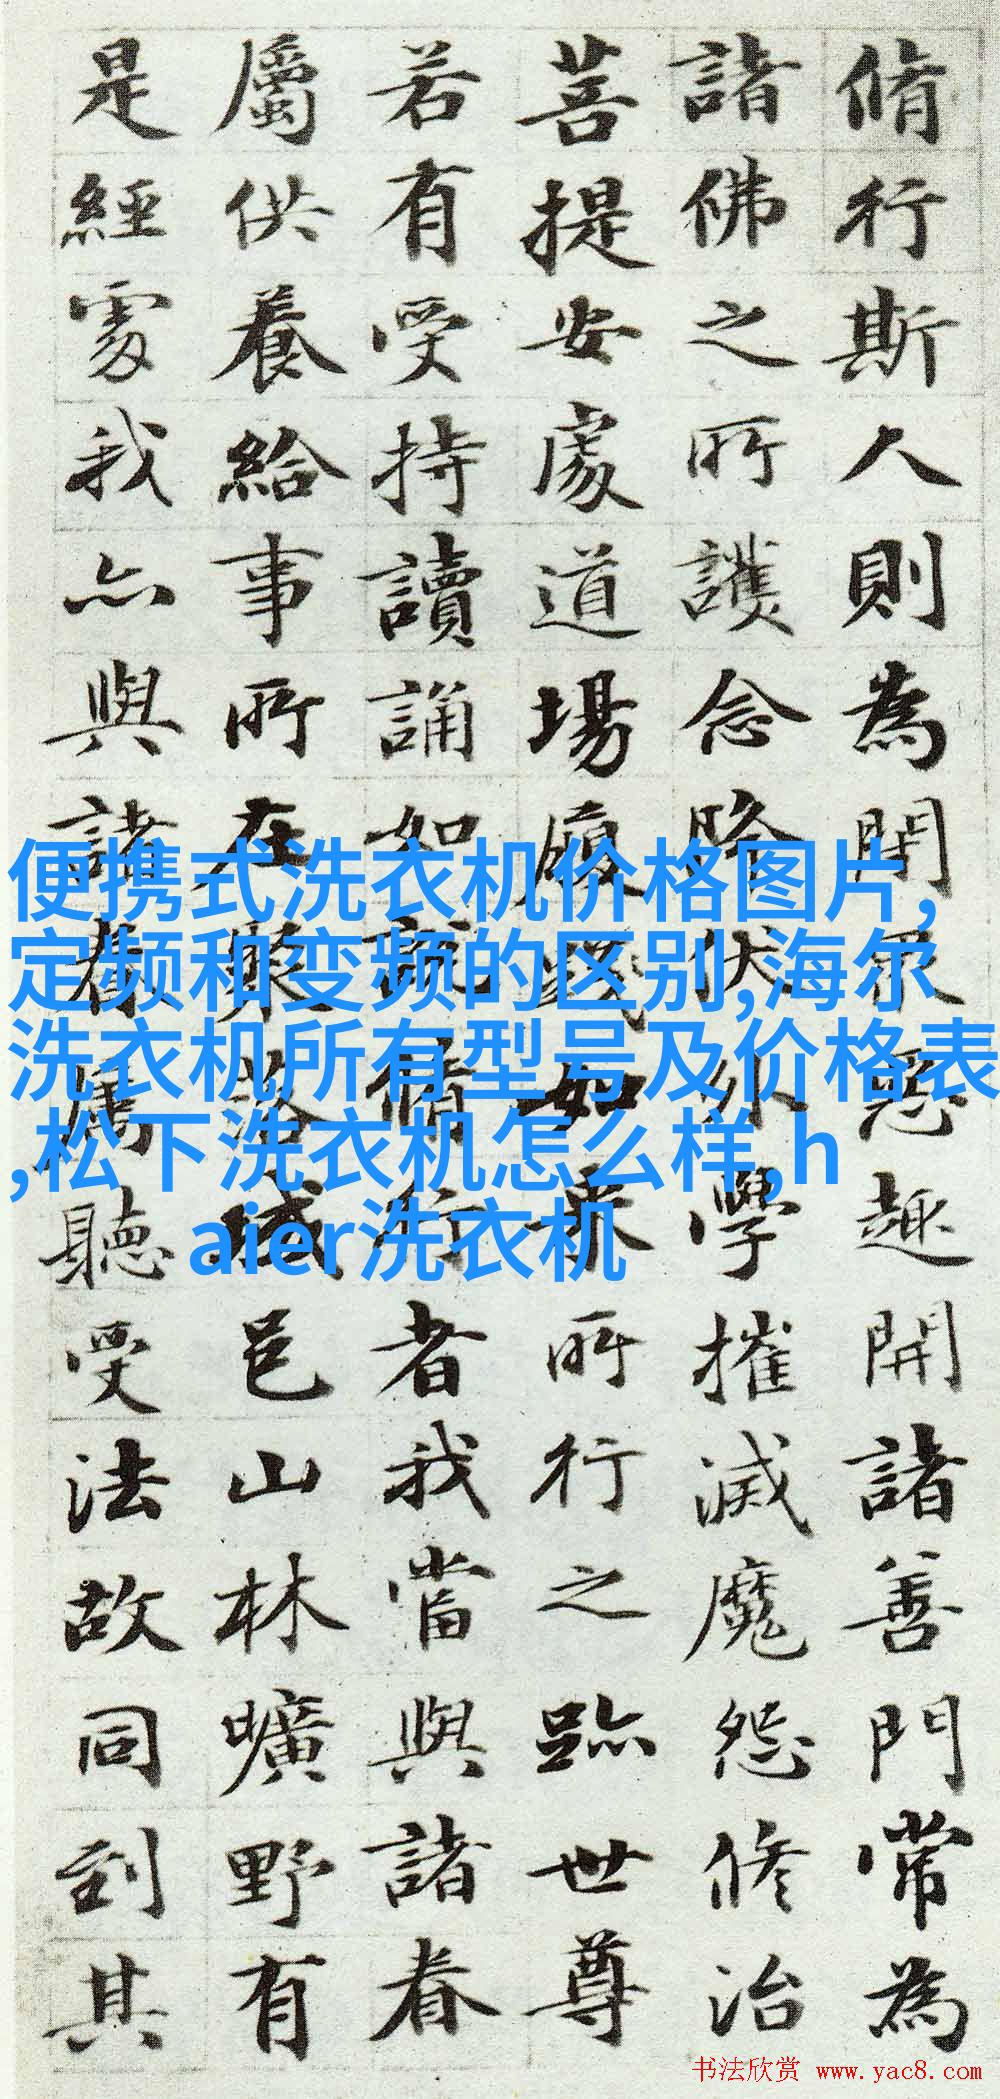 脩行斯人則為閇衆惡趣開諸善門常為
諸佛之所護念降伏外學摧滅魔怨修治
菩提安處道場履踐如來所行之跡世尊
若有受持讀誦如說脩行者我當與諸眷
屬供養給事所在聚落城邑山林曠野有
是經處我亦與諸眷屬聽受法故同到其
便携式洗衣机价格图片,
定频和变频的区别,海尔
洗衣机所有型号及价格表
,松下洗衣机怎么样,h
aier洗衣机
书法欣赏 www.yac8.com